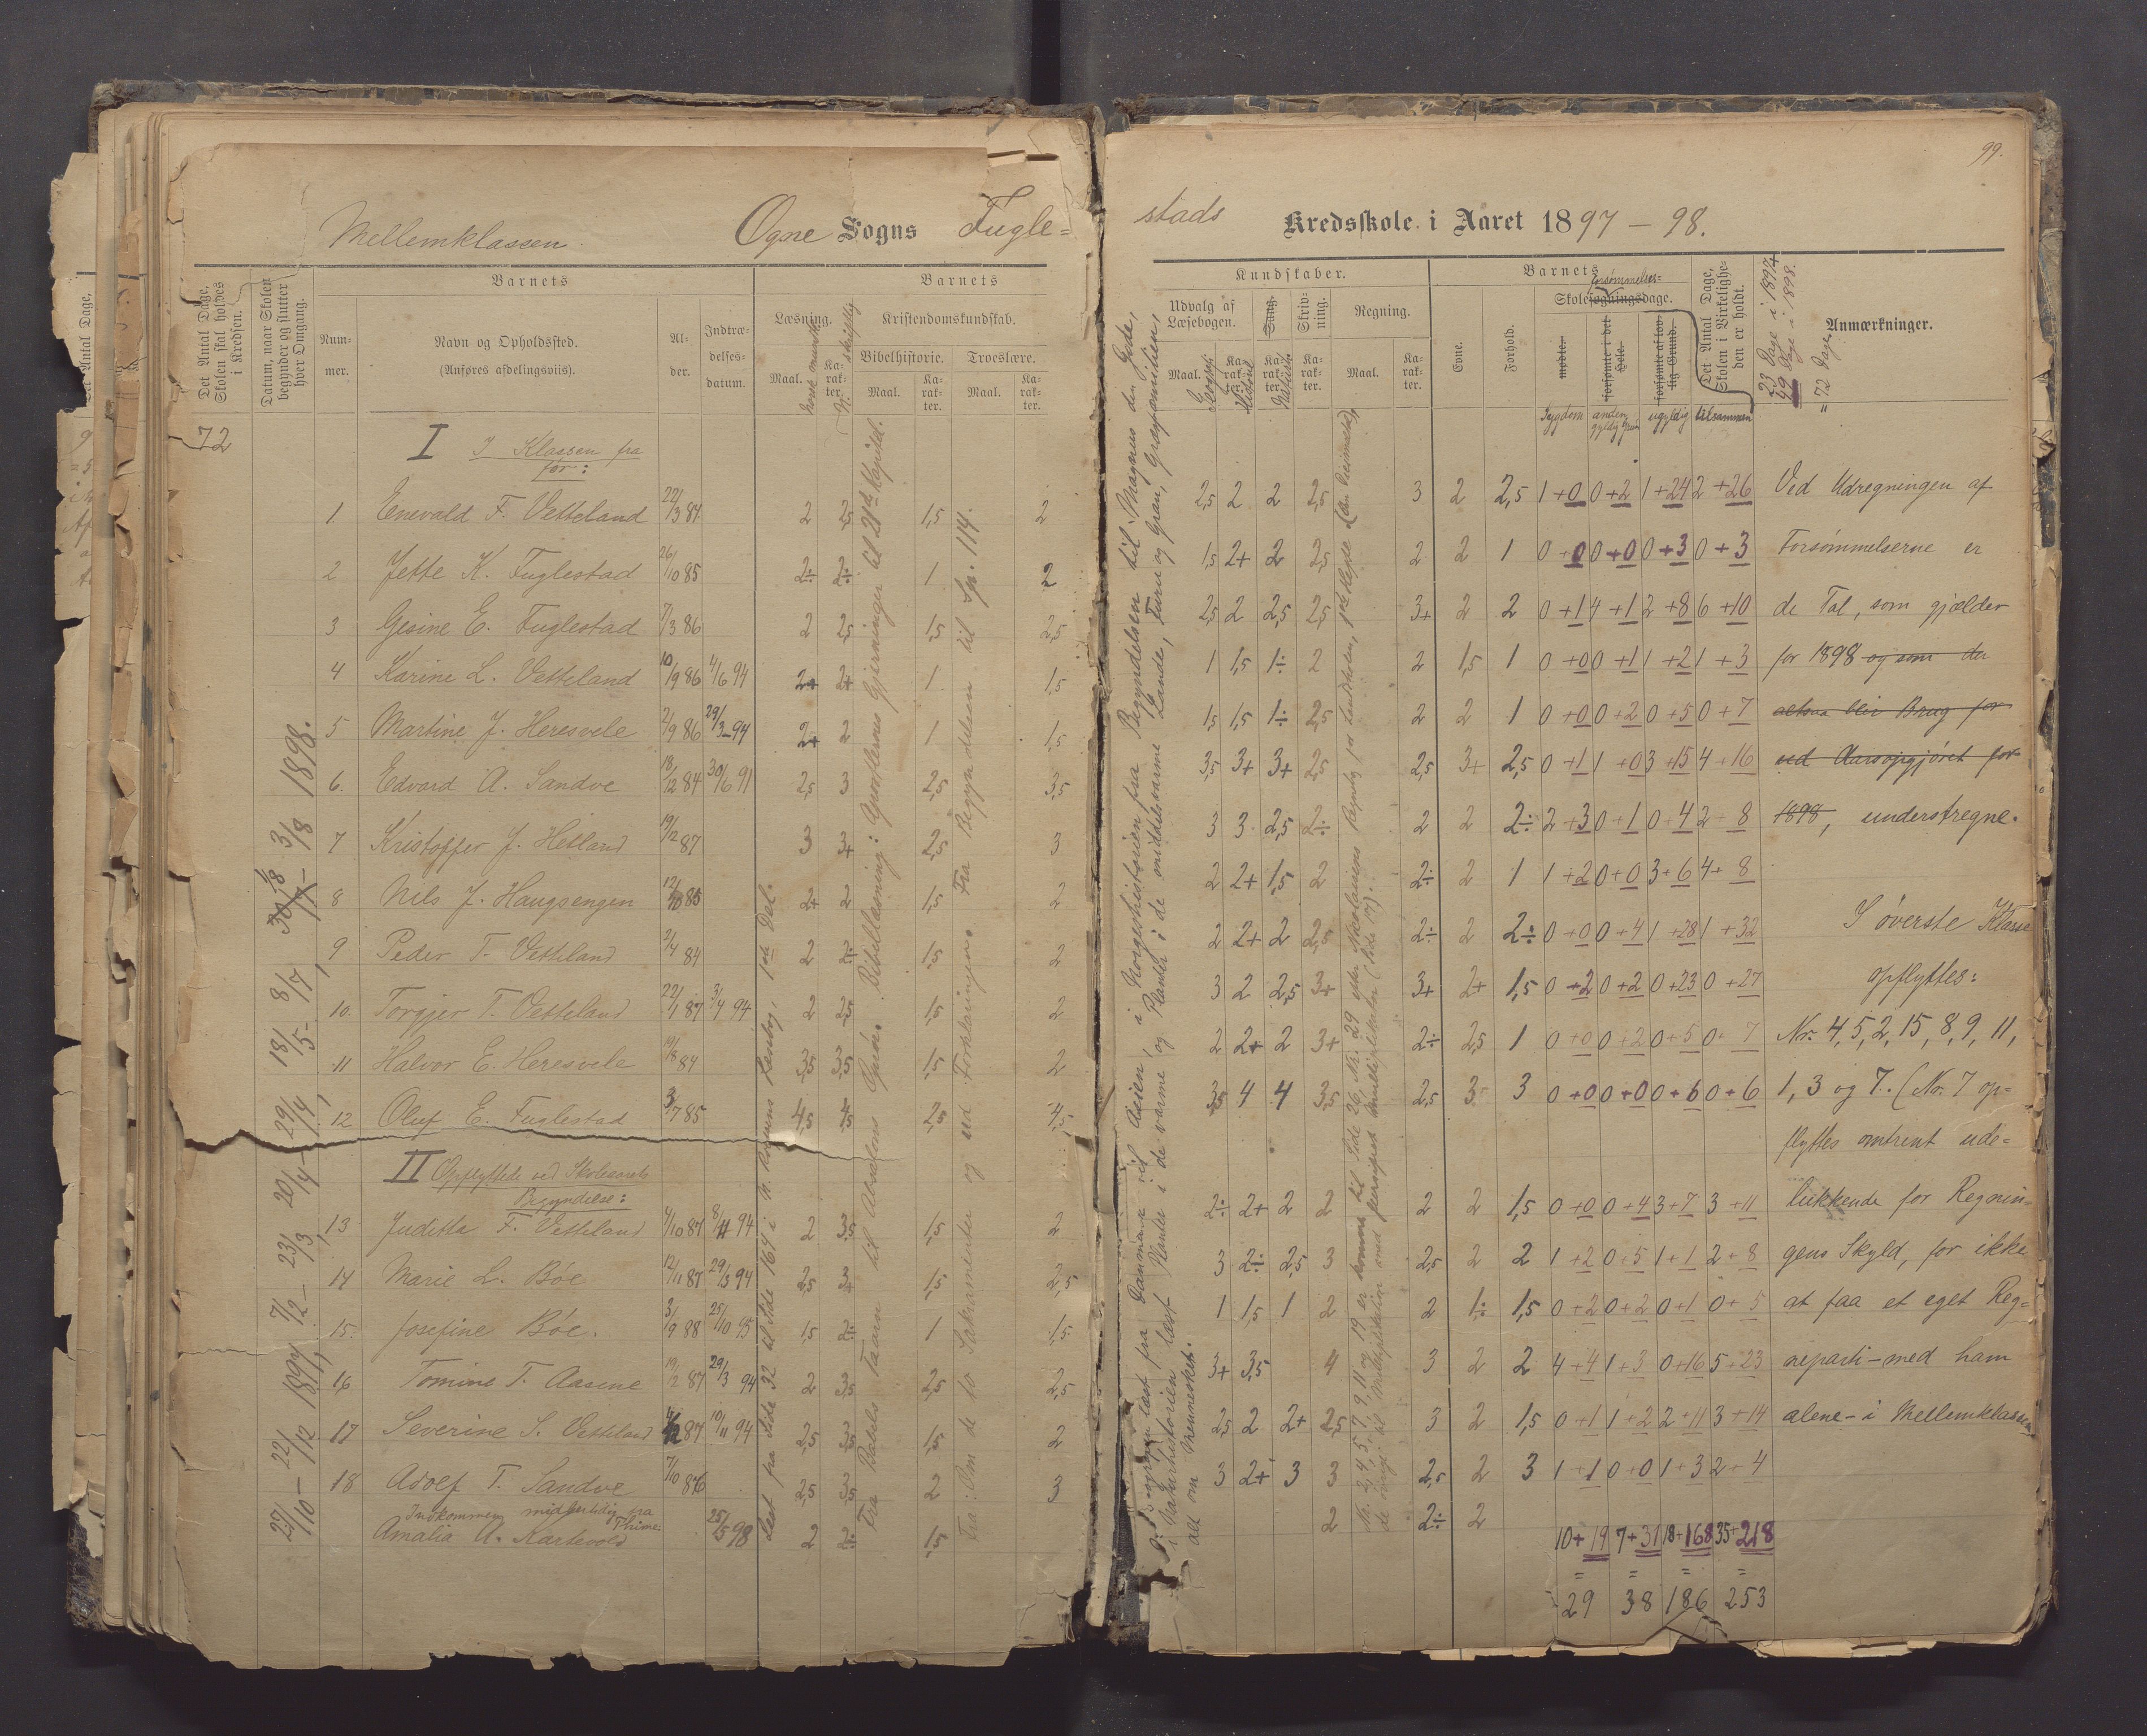 99.
Mellemklassen.
Ogne Sogns Fugle=
stads Kredsskole i Aaret 1897-98.
Det Antal Dage, Skolen skal holdes i Kredsen.
Datum, naar Skolen begynder og slutter hver Omgang.
Nummer.
Barnets
Navn og Opholdssted.
(Anføres afdelingsviis).
Alder.
Indtrædelsesdatum.
Barnets
Læsning.
Maal. Karakter.
Kristendomskundskab.
Bibelhistorie.
Maal. Karakter.
Troeslære.
Maal. Karakter.
Kundskaber.
Udvalg af Læsebogen.
Maal. Karakter.
Geografi
Historie
Sang.
Karakter.
Skrivning.
Karakter.
Regning.
Maal. Karakter.
Barnets
Evne.
Forhold.
Skolesøgningsdage.
forsømmelses=
mødte.
forsømte i det Hele.
forsømte af lovlig Grund.
Det Antal Dage, Skolen i Virkeligheden er holdt.
Sygdom
anden gyldig Grund
ugyldig
tilsammen
23 Dage i 1897+
49 Dage i 1898.
= 72 Dage
Anmærkninger.
72
I I Klassen fra
før:
1. Enevald F. Vetteland 22/3 84 2 2,5 1,5 2 2,5 2 2 2,5 3 2 2,5 1+0 0+2 1+24 2+26 Ved Udregningen af
2 Jette K. Fuglestad 26/10 85 2÷ 2÷ 1 2 1,5 2+ 2 2,5 2 2 1 0+0 0+0 0+3 0+3 Forsømmelserne er
3 Gesine E. Fuglestad 7/3 86 2 2,5 1,5 2,5 2,5 2 2,5 2,5 3+ 2 2 0+1 4+1 2+8 6+10 de Tal, som gjælder
4 Karine L. Vetteland 10/9 86 4/6 94 2+ 2+ 1 1,5 1 1,5 1÷ 2 2 1,5 1 0+0 0+1 1+2 1+3 for 1898 og som der
5 Martine J. Heresvele 2/9 86 29/3-94 2+ 2 1 1,5 1,5 1,5 1÷ 2,5 2 2 1 0+0 0+2 0+5 0+7 altsaa blir Brug for
6. Edvard A. Sandve 18/12 84 30/6 91 2,5 3 2,5 3,5 3,5 3+ 3+ 2,5 2,5 3+ 2,5 0+1 1+0 3+15 4+16 ved Aarsopgjøret for
7 Kristoffer J. Hetland 19/12 87 3 3+ 2,5 3 3 3 2,5 2÷ 2 2 2÷ 2+3 0+1 0+4 2+8 1898, understregne.
8 Nils J. Haugsengen 12/10 85 2+ 2 1,5 2 2 2+ 1,5 2 2÷ 2 1 1+2 0+0 3+6 4+8
9 Peder T. Vetteland 2/4 84 2 2÷ 1,5 2 2 2+ 2 2,5 2÷ 2 2÷ 0+0 0+4 1+28 1+32 I øverste Klasse
10. Torgjer T. Vetteland 22/1 87 3/4 94 2 2,5 1,5 2 3 2 2,5 3+ 3+ 2+ 1,5 0+2 0+2 0+23 0+27 opflyttes:
11 Halvor E. Heresvele 4/8 84 3,5 3,5 1,5 2 2 2+ 2 3+ 2÷ 2,5 1 0+0 0+2 0+5 0+7 No. 4, 5, 2, 15, 8, 9, 11,
12 Oluf E. Fuglestad 3/7 85 4,5 4,5 2,5 4,5 3,5 4 4 3,5 2,5 3 3 0+0 0+0 0+6 0+6 1, 3 og 7. (No. 7 op=
flyttes omtrent ude=
II Opflyttede ved Skoleaarets
Begyndelse:
13 Juditta F. Vetteland 4/10 87 8/11 94 2 3,5 1,5 2 2÷ 2+ 2 2 2 2 1,5 0+0 0+4 3+7 3+11 lukkende for Regnin=
14 Marie L. Bøe 12/11 87 29/3 94 2,5 3+ 1,5 2,5 3 2÷ 2,5 3 2,5 2 2 1+2 0+5 1+1 2+8 gens Skyld, for ikke
15. Josefine Bøe. 3/9 88 25/10 95 1,5 2÷ 1 1,5 1 1,5 1 2 2 1÷ 1,5 0+2 0+2 0+1 0+5 at faa et eget Reg=
16 Tomine T. Aasene 19/2 87 29/3 94 2 3,5 2,5 2,5 3+ 3,5 4 3 2 2 4+4 1+3 0+16 5+23 neparti-med ham
17 Severine S. Vetteland 87 10/11 94 2,5 3,5 1,5 2 2,5 2 2+ 2,5 3 2 1,5 0+1 1+2 2+11 3+14 alene-i Mellemklassen
18 Adolf T. Sandve 7/10 86 2,5 3,5 2 3 3 2+ 3 3 2,5 2 3 1+1 0+0 1+3 2+4
Indkommen midlertidig fra Thime
Amalia A. Kartevold 25/5 98 2 2÷ 1,5 2 2÷ 2
10+19 7+31 18+168 35+218
= = = =
29 38 186 253
27/10 - 22/12 1897, 7/2 - 23/3, 20/4 - 29/4, 18/5 - 8/7, 3/8 1898.
Læst fra Side 32 til Side 164 i N. Rognums Læsebog, 1ste Del.
Fra Rabels Taarn til Absalons Oprør. Bibellæsning: Apostlenes Gjerninger til 21de Kapitel.
Fra: Om de to Sakramenter og ud Forklaringen. Fra Begyndelsen til Sp. 114.